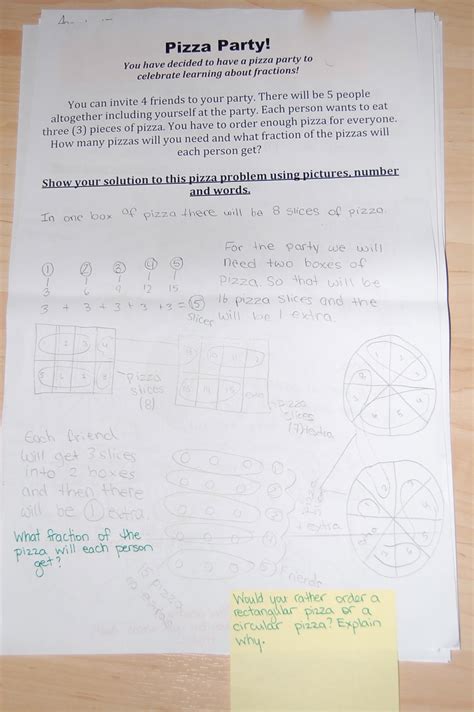 Pizza Party!
You have decided to have a pizza party to
celebrate learning about fractions!
You can invite 4 friends to your party. There will be 5 people
altogether including yourself at the party. Each person wants to eat
three (3) pieces of pizza. You have to order enough pizza for everyone.
How many pizzas will you need and what fraction of the pizzas will
each person get?
Show your solution to this pizza problem using pictures, number
and words.
In one box of pizza there will be 8 slices of pizza.
For the party we will
need two boxes of
pizza. So that will be
16 pizza slices and the
will be 1 extra.
1 2 3 4 5
3 6 9 12 15
3 + 3 + 3 + 3 + 3 =
slices
pizza
slices
(8)
pizza
slices
(7) + extra
Each friend
will get 3 slices
into 2 boxes
and then there
will be 1 extra
pizza
slices
+ extra
Friends
What fraction of the
pizza will each person
get?
Would you rather order a
rectangular pizza or a
circular pizza? Explain
why.